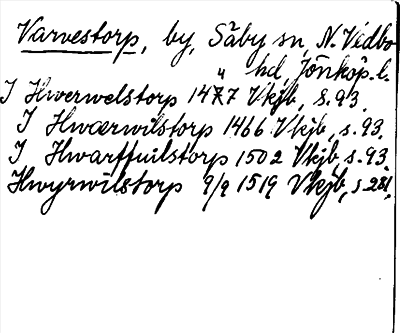 Varvestorp, by, Säby sn, N. Vedbo
" hd, Jönköp. l.
I Hwerwelstorp 1477 Vkjb, s. 93.
I Hwærwilstorp 1466 Vkjb, s. 93.
I Hwarffuilstorp 1502 Vkjb, s. 93.
Hwyrwilstorp 9/9 1519 Vkjb, s 281.